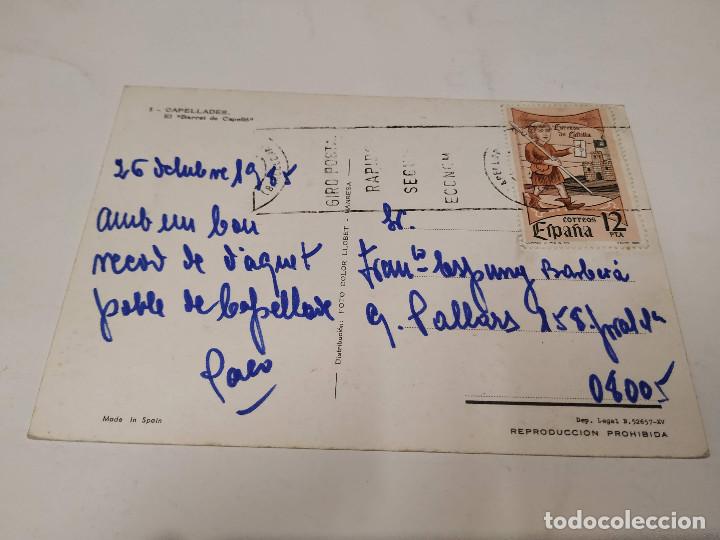 3 - CAPELLADES.
El "Barret de Capellà"
26 octubre 1985
amb un bon
record de d'aquet
poble de Capellade
Paco
Made in Spain
Distribución: FOTO COLOR LLOBET - MANRESA
GIRO POSTAL
RAPIDO
SEGU
ECONOM
Correos de Castilla
CORREOS
España
12
PTA
Sr.
Franco Barberá
G. Pallars 258
08005
Dep. Legal B.52657-XV
REPRODUCCION PROHIBIDA
todocoleccion
todocoleccion.net